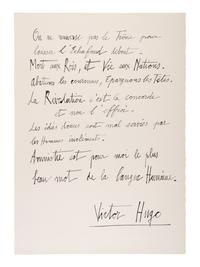 On ne renverse pas le Trône pour
laisser l'Echafaud debout.
Mort aux Rois, et Vie aux Nations.
abattons les couronnes, Epargnons les Têtes.
La Révolution c'est la concorde
et non l'effroi.
Les idées douces sont mal servies par
les Hommes inclément.
Amnistie est pour moi le plus
beau mot de la Langue Humaine.
Victor Hugo